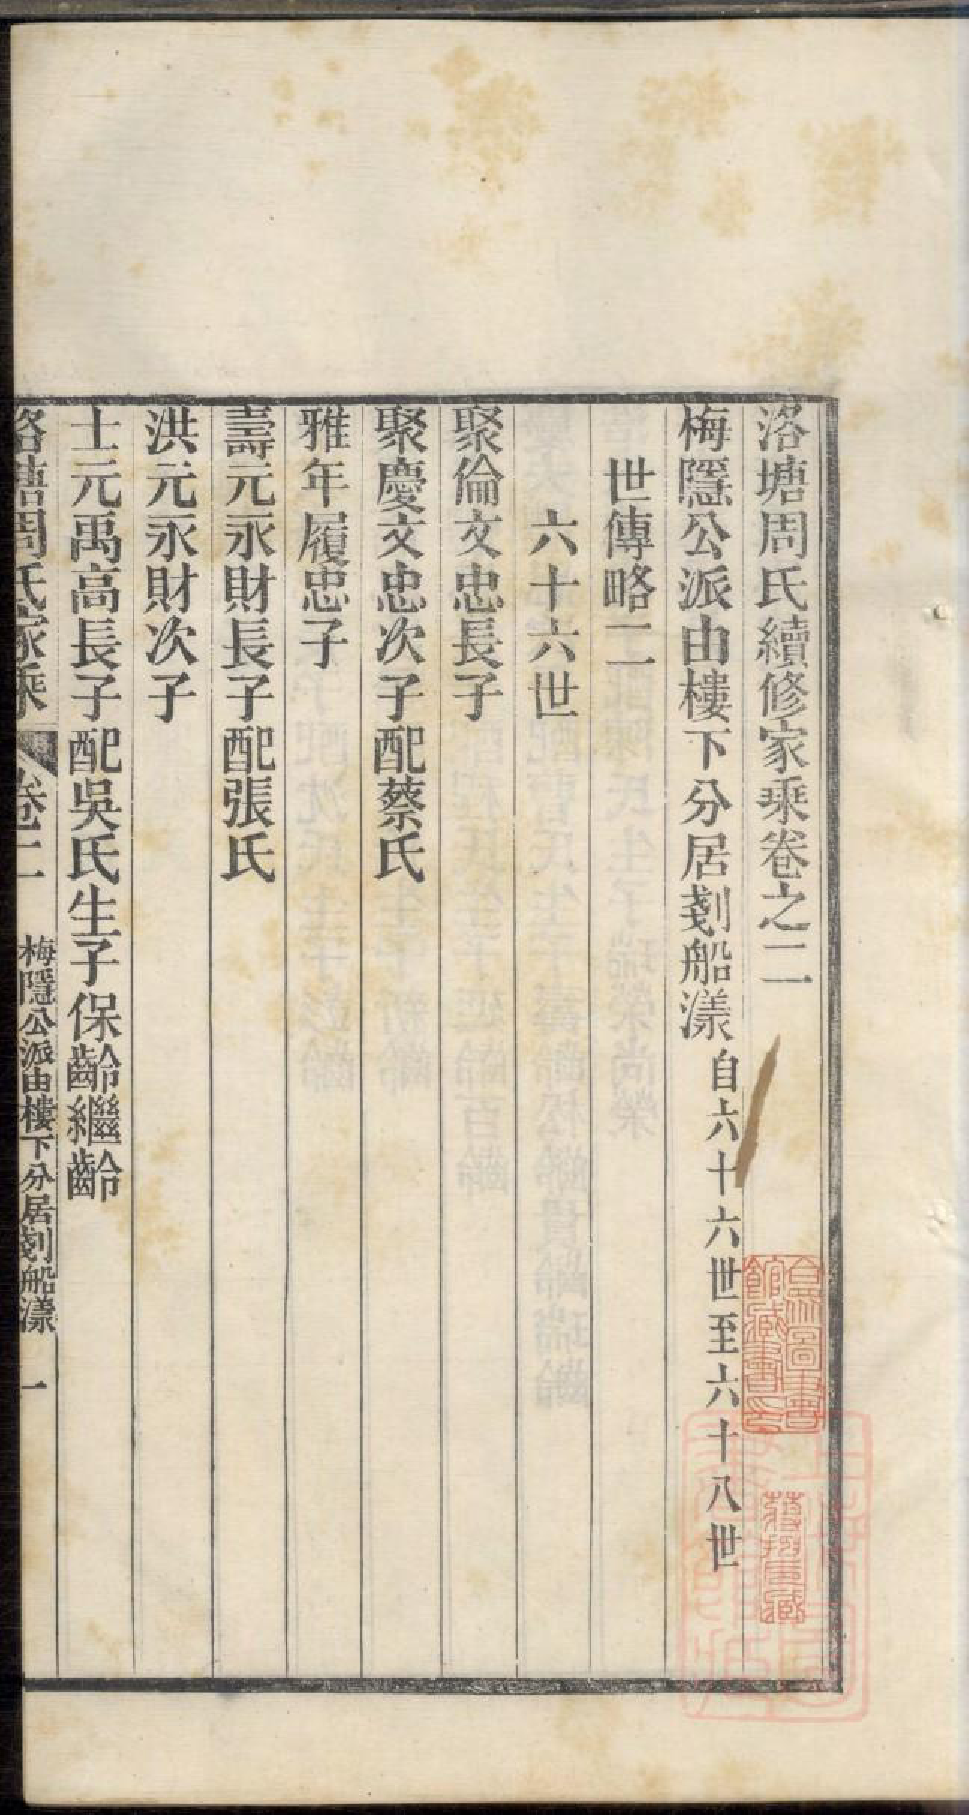 洛塘周氏續修家乘卷之二
梅隱公派由樓下分居剗船漾自六十六世至六十八世
世傳略二
六十六世
聚倫文忠長子
聚慶文忠次子配蔡氏
雅年履忠子
壽元永財長子配張氏
洪元永財次子
士元禹高長子配吳氏生子保齡繼齡
洛塘周氏家乘 卷二 梅隱公派由樓下分居剗船漾 一